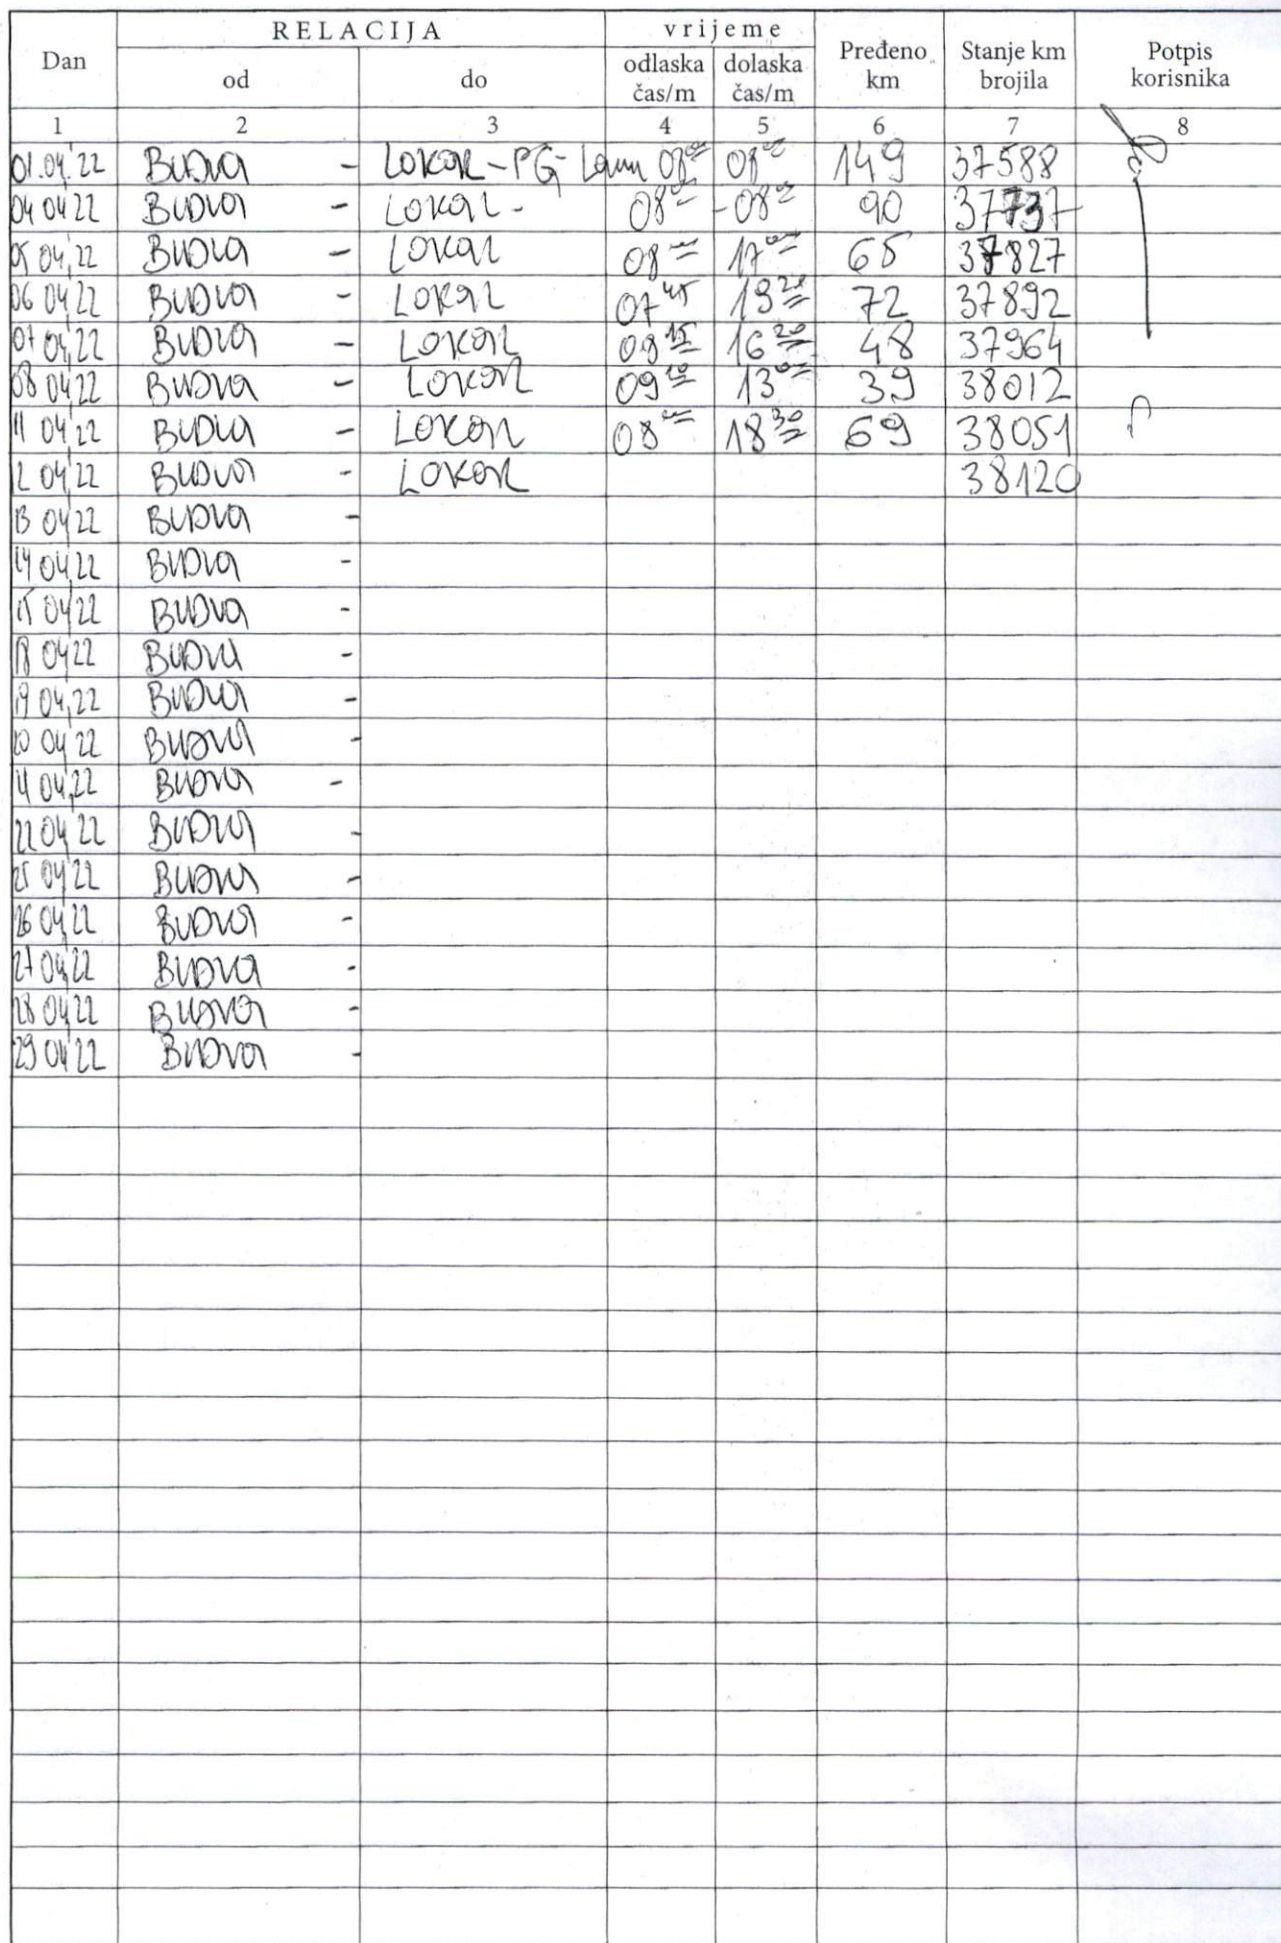 RELACIJA vrijeme
Dan od do odlaska čas/m dolaska čas/m Pređeno km Stanje km brojila Potpis korisnika
1 2 3 4 5 6 7 8
01.04.22 BUDVA - LOKAL - PG - 08 00 08 00 149 37588
04 04 22 BUDVA - LOKAL - 08 00 - 08 00 90 37737
05 04,22 BUDVA - LOKAL 08 00 17 00 65 37827
06 04 22 BUDVA - LOKAL 07 45 19 20 72 37892
07 04,22 BUDVA - LOKAL 08 15 16 20 48 37964
08 04 22 BUDVA - LOKAL 09 10 13 00 39 38012
11 04 22 BUDVA - LOKAL 08 00 18 30 69 38051
12 04,22 BUDVA - LOKAL 38120
13 04 22 BUDVA -
14 04 22 BUDVA -
15 04 22 BUDVA -
18 04 22 BUDVA -
19 04,22 BUDVA -
20 04 22 BUDVA -
04,22 BUDVA -
22 04 22 BUDVA -
25 04 22 BUDVA -
26 04 22 BUDVA -
27 04 22 BUDVA -
28 04 22 BUDVA -
29 04 22 BUDVA -